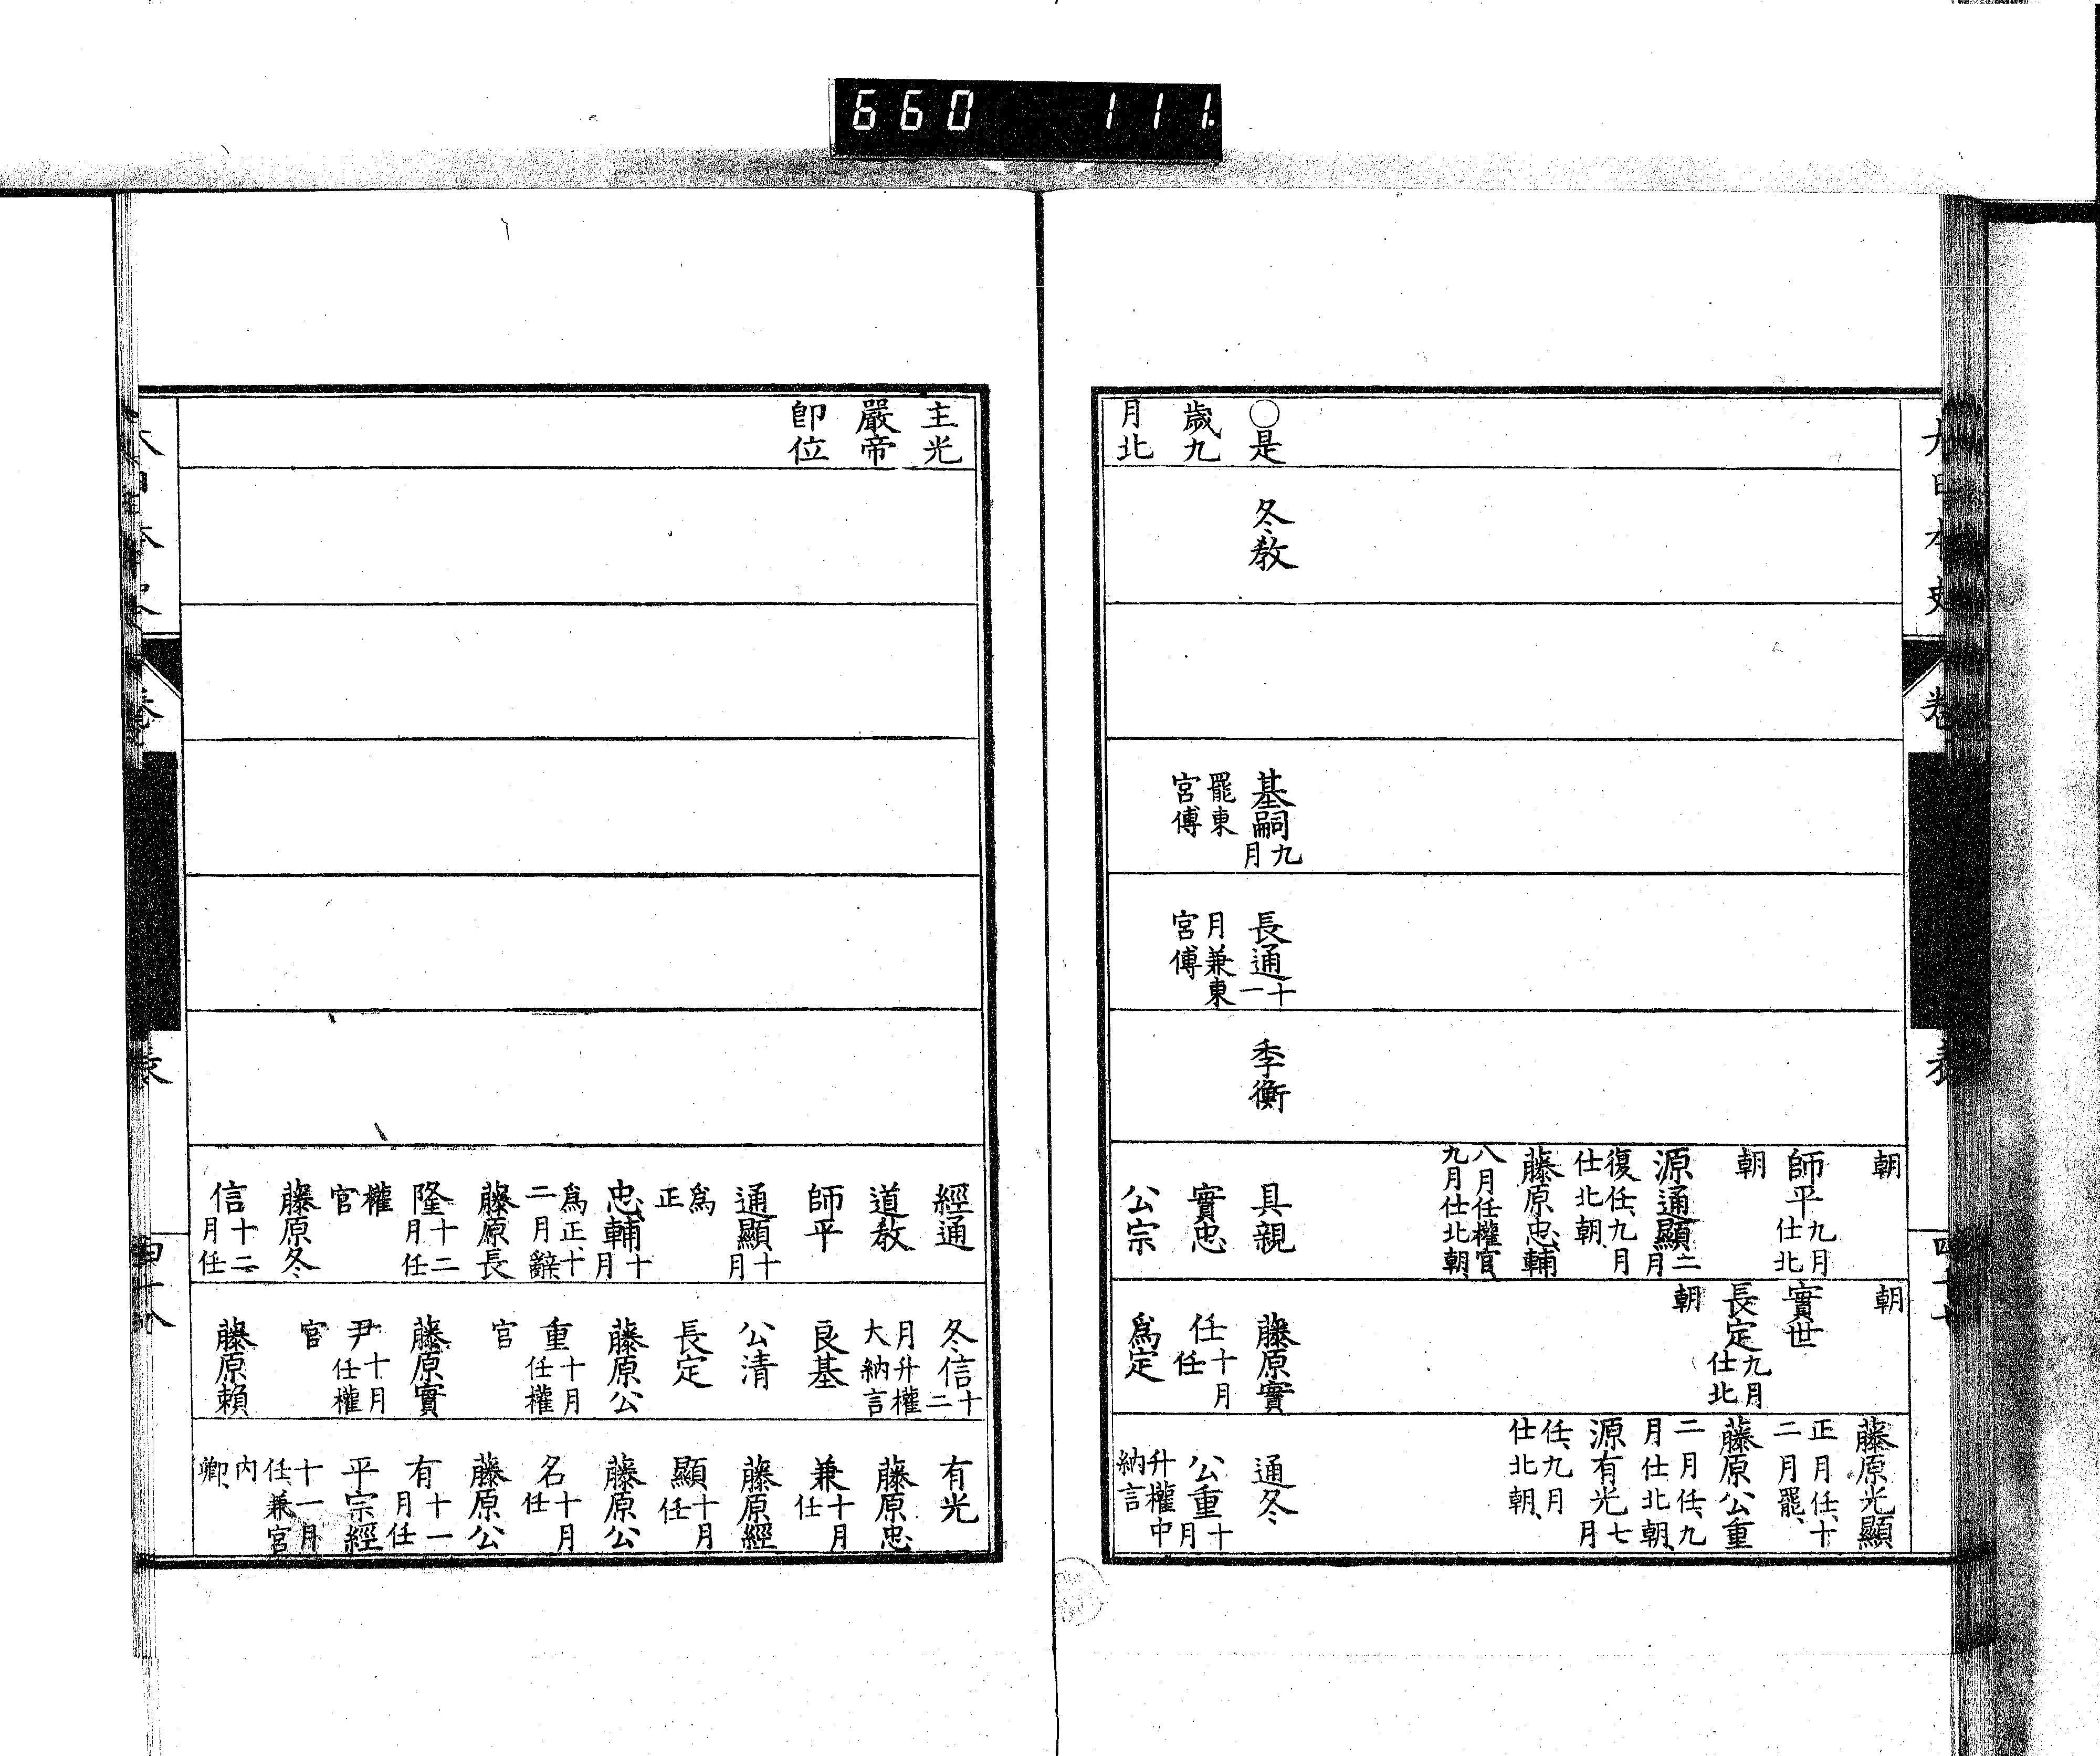 大日本史
卷
表
四十七
○是
歳九
月北
冬教
基嗣九月
罷東
宮傅
長通十一
月兼東
宮傅
季衡
朝
師平九月仕北
朝
源通顯二月
復任、九月
仕北朝、
藤原忠輔
八月任權官、
九月仕北朝、
具親
實忠
公宗
朝
實世
長定九月仕北
朝
藤原實
任十月任
爲定
藤原光顯
正月任、十
二月罷、
藤原公重
二月任、九
月仕北朝、
源有光七月
任、九月
仕北朝、
通冬
公重十月
升權中
納言
主光
嚴帝
卽位
經通
道教
師平
通顯十月
爲
正
忠輔十月
爲正、十
二月辭
藤原長
隆十二月任
權
官
藤原冬
信十二月任
冬信十二
月升權
大納言
良基
公清
長定
藤原公
重十月任權
官
藤原實
尹十月任權
官
藤原賴
有光
藤原忠
兼十月任
藤原經
顯十月任
藤原公
名十月任
藤原公
有十一月任
平宗經
十一月
任、兼宮
內
卿、
表